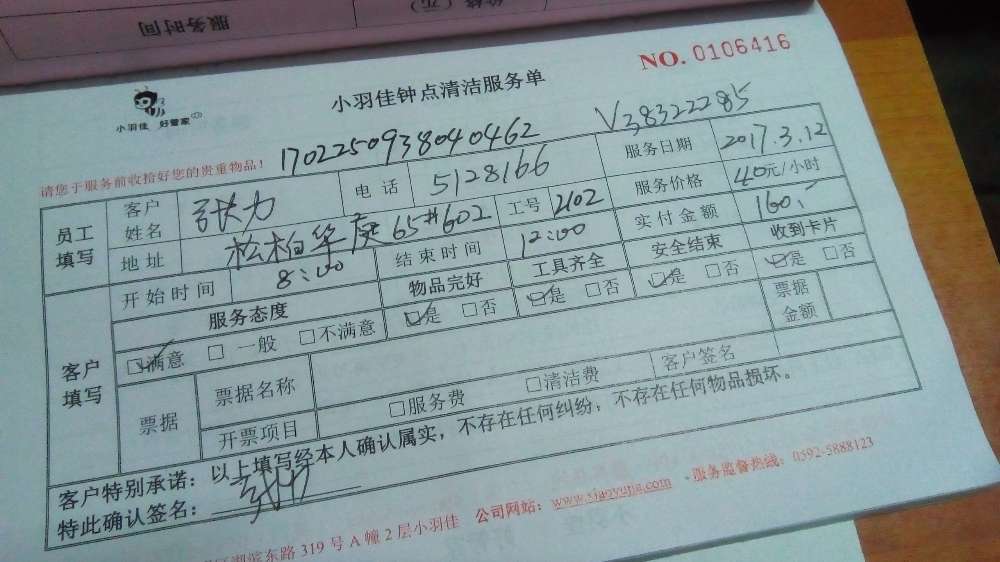 服务时间
(元)
NO. 0106416
小羽佳 好管家
小羽佳钟点清洁服务单
请您于服务前收拾好您的贵重物品！
1702250938040462
V38322285
员工填写 客户姓名 张力 电话 5128166 服务日期 2017.3.12
地址 松柏华庭65#602 工号 2102 服务价格 40元/小时
开始时间 8:00 结束时间 12:00 实付金额 160.
客户填写 服务态度 物品完好 工具齐全 安全结束 收到卡片
☑满意 □ 一般 □不满意 ☑是 □否 ☑是 □否 ☑是 □否 ☑是 □否
票据 票据名称 票据金额
开票项目 □服务费 □清洁费 客户签名
客户特别承诺：以上填写经本人确认属实，不存在任何纠纷；不存在任何物品损坏。
特此确认签名：
湖滨东路 319 号 A 幢 2 层小羽佳 公司网站：www.xiaoyujia.com 服务监督热线：0592-5888123